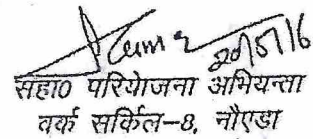 20/5/16
सहा0 परियोजना अभियन्सा
वर्क सर्किल-8, नौएडा